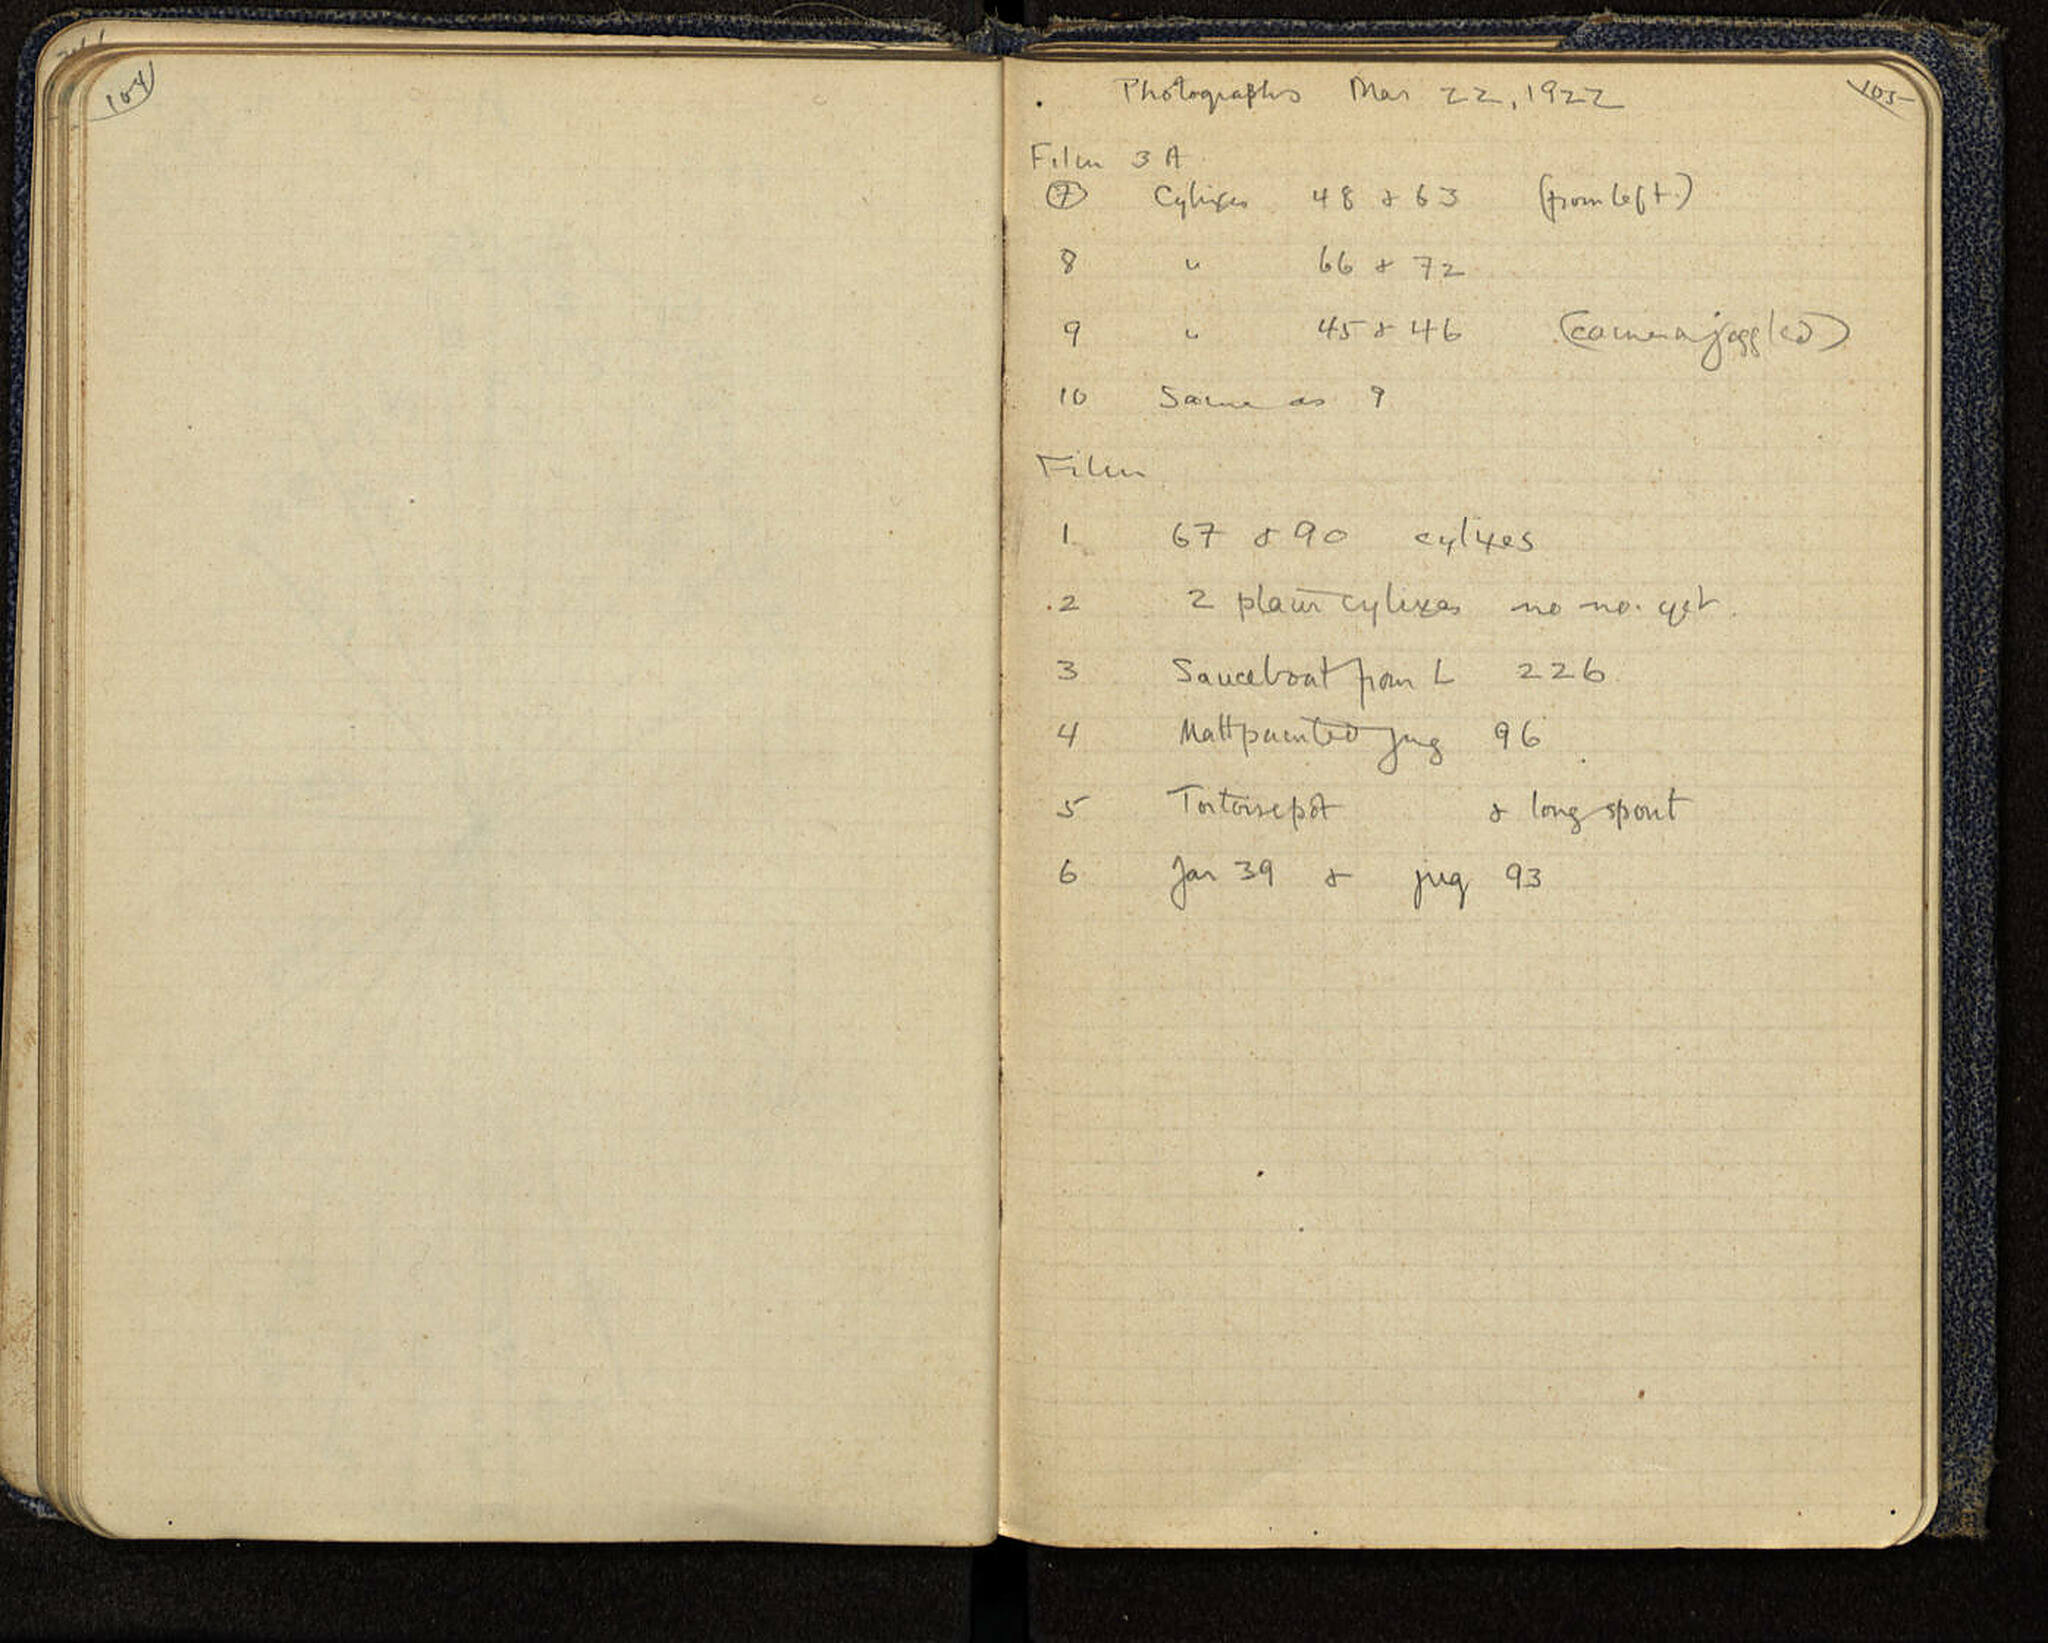 104
Photographs Mar 22, 1922
105
Film 3A
7 Cylixes 48 & 63 (from left.)
8 " 66 & 72
9 " 45 & 46 (camera joggled)
10 Same as 9
Film
1 67 & 90 cylixes
2 2 plain cylixes no no. yet.
3 Sauceboat from L 226
4 Mattpainted jug 96
5 Tortoisepot & long spout
6 Jar 39 & jug 93